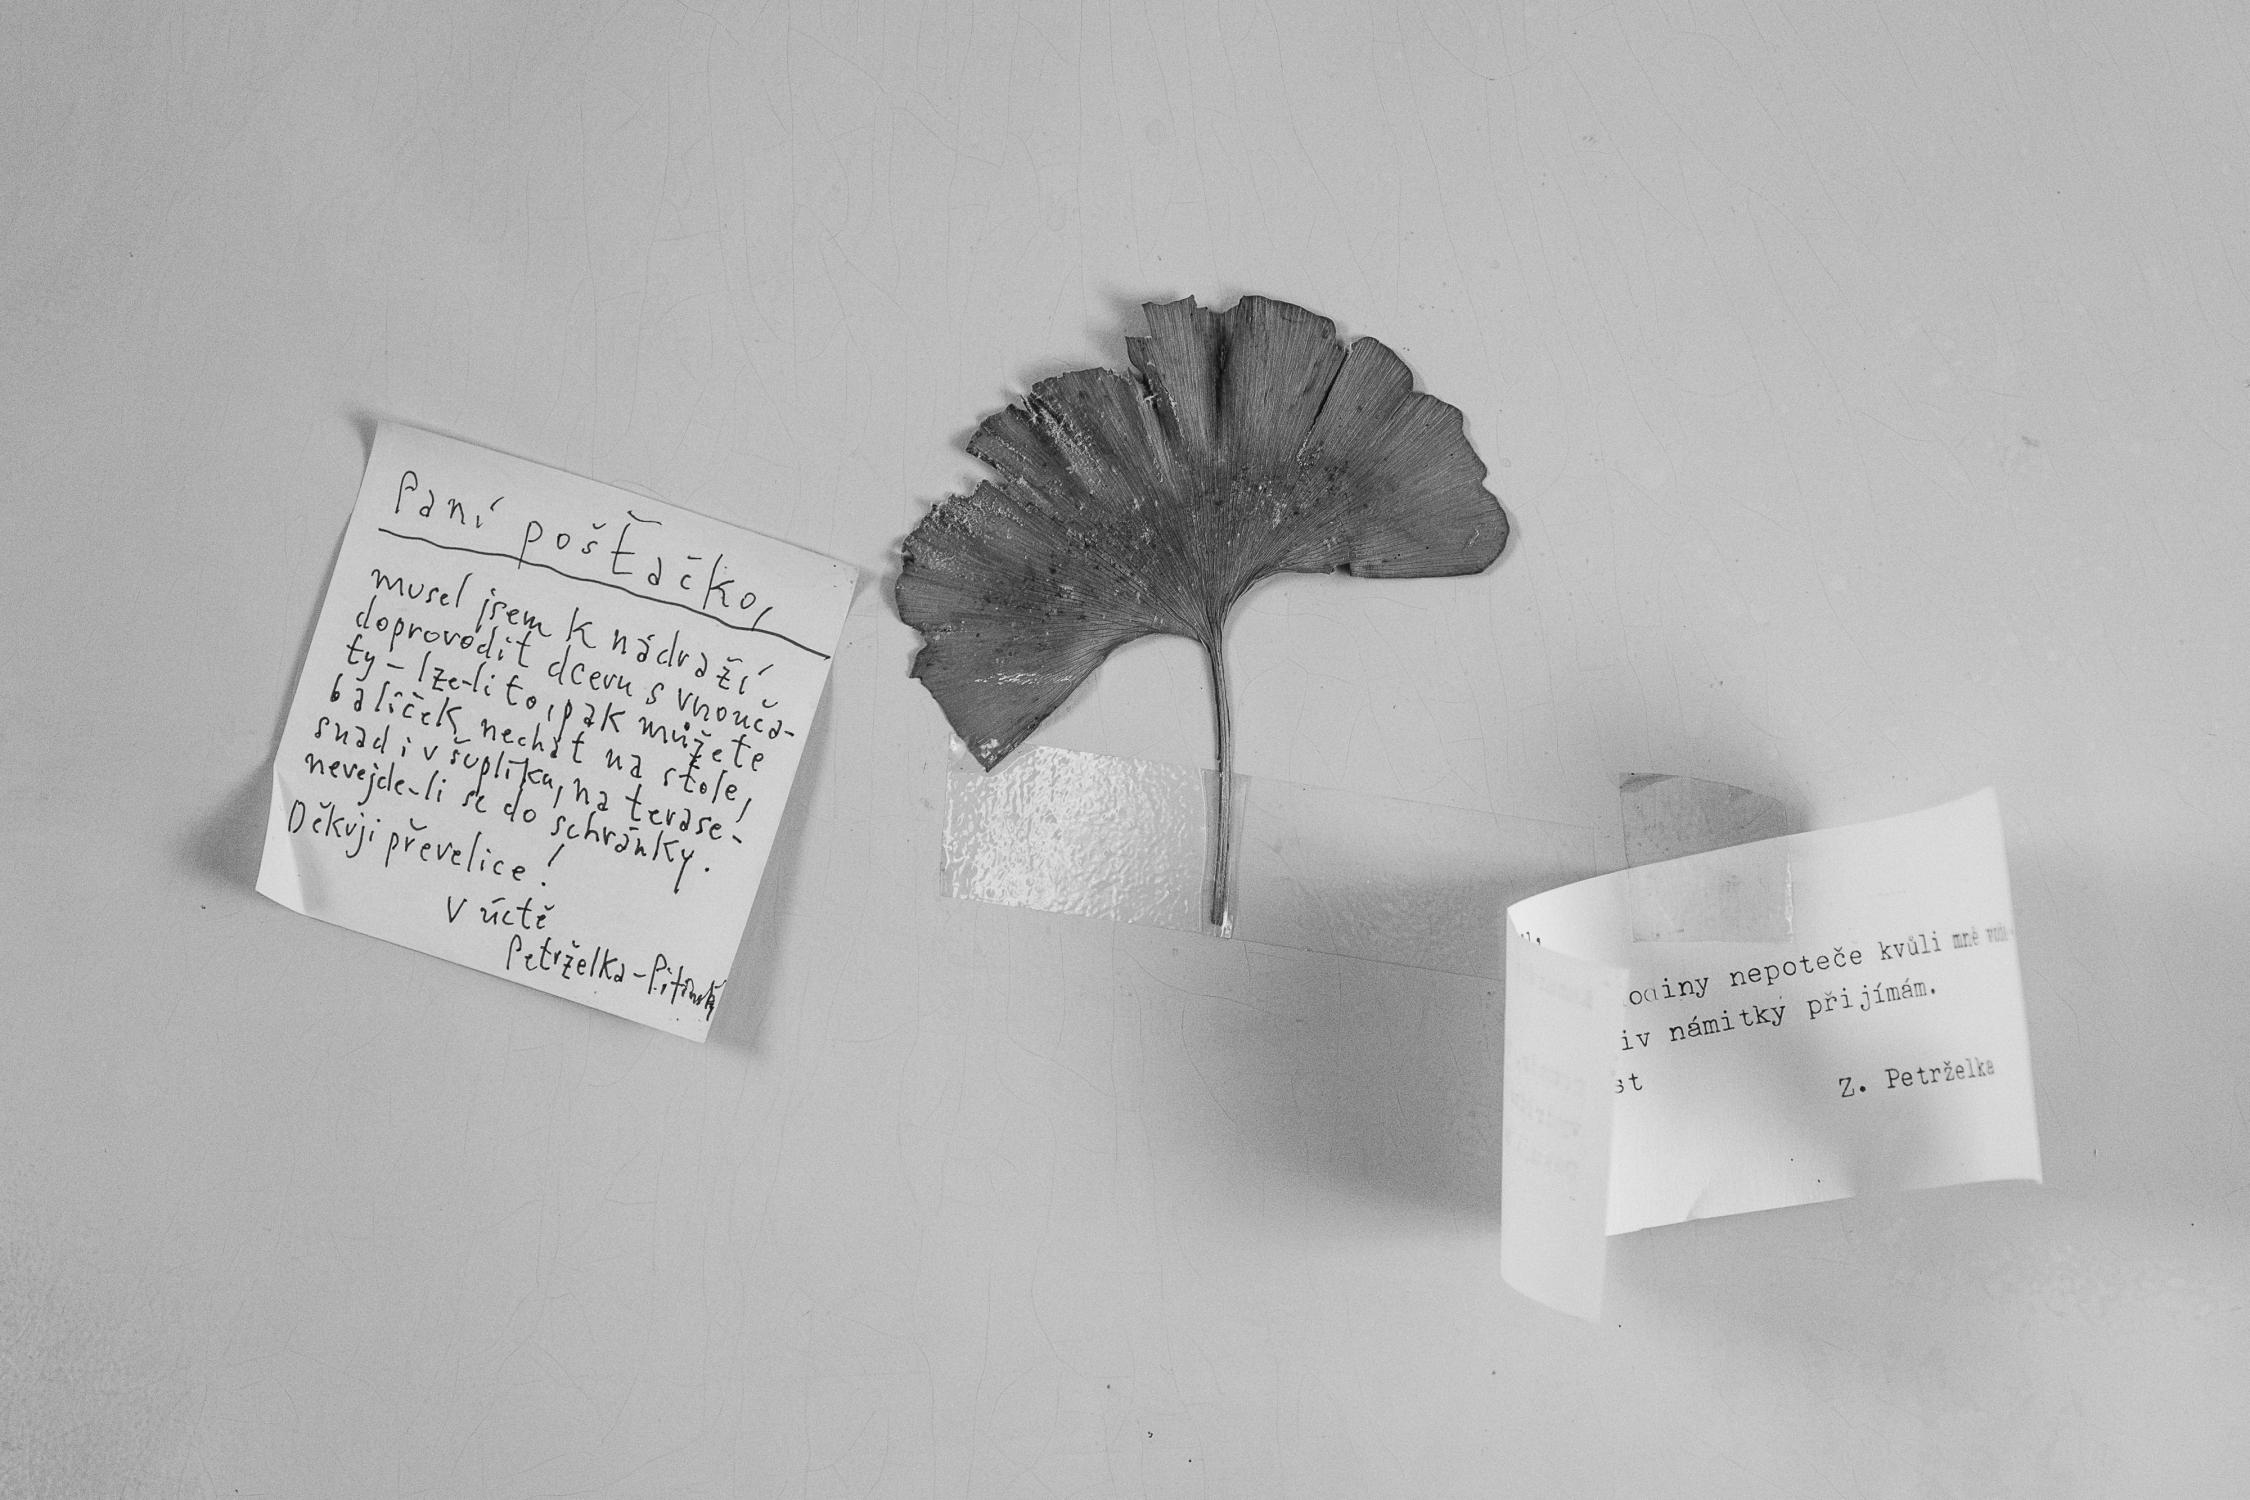 Paní pošťačko,
musel jsem k nádraží
doprovodit dceru s vnouča-
ty – lze-li to, pak můžete
balíček nechat na stole,
snad i v šuplíku, na terase –
nevejde-li se do schránky.
Děkuji převelice!
V úctě
Petrželka-Pitínský
odiny nepoteče kvůli mně
iv námitky přijímám.
st Z. Petrželka